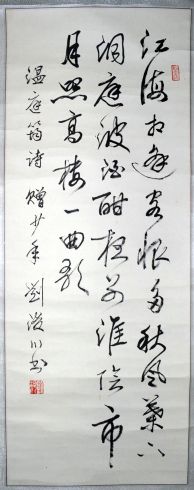 江海相逢客恨多秋風葉下
洞庭波酒酣夜別淮陰市
月照高樓一曲歌
温庭筠诗赠少年劉浚川书